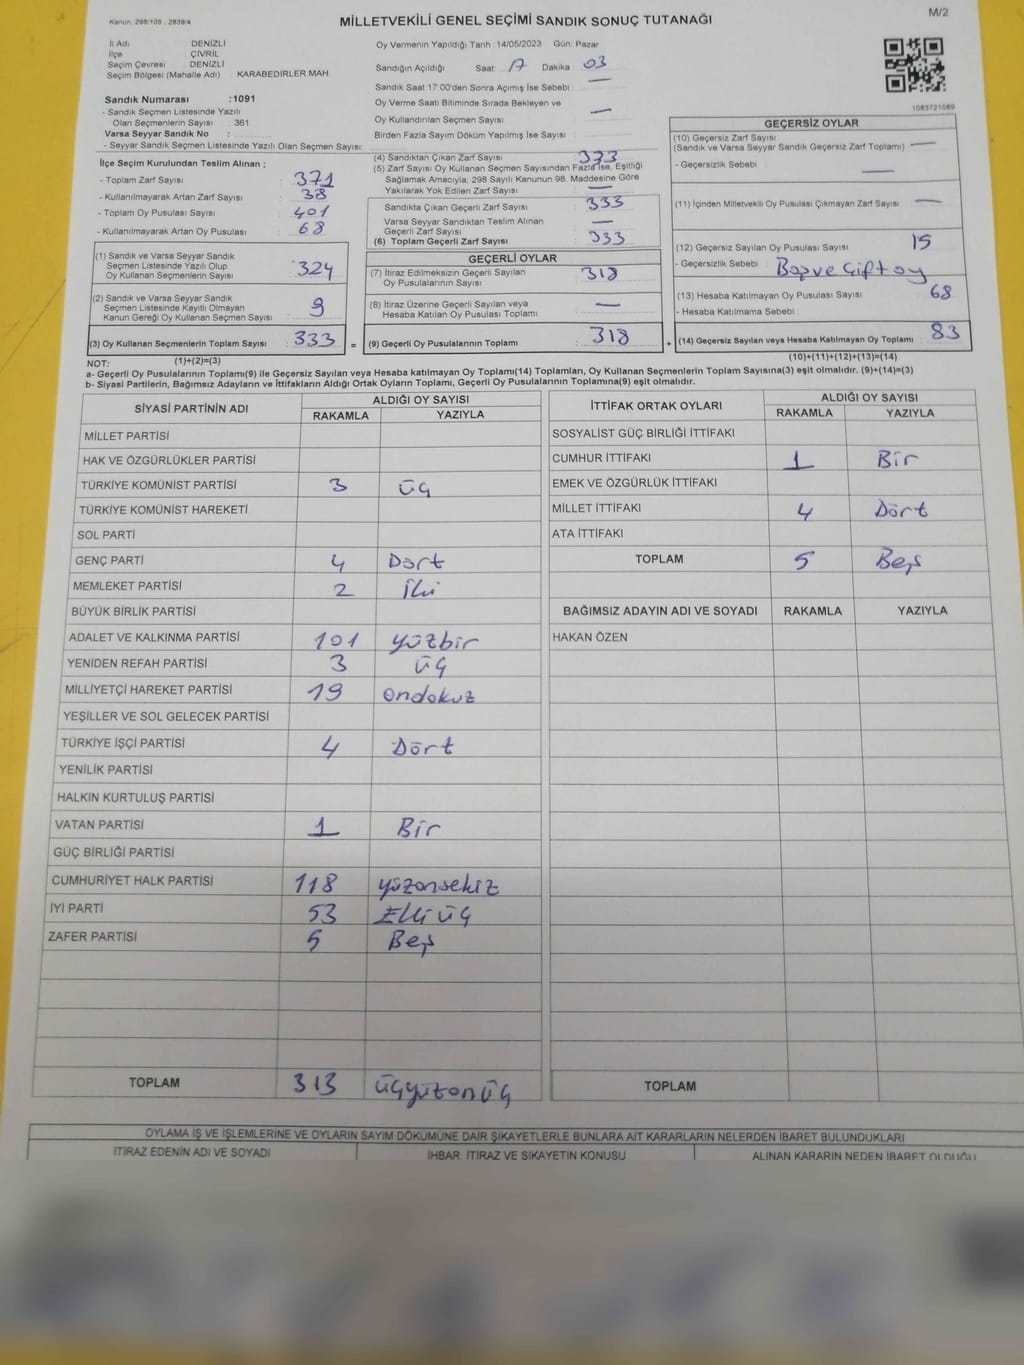 Kanun: 298/105 , 2839/4
MİLLETVEKİLİ GENEL SEÇİMİ SANDIK SONUÇ TUTANAĞI
M/2
İl Adı : DENİZLİ
İlçe : ÇİVRİL
Seçim Çevresi : DENİZLİ
Seçim Bölgesi (Mahalle Adı) : KARABEDİRLER MAH.
Sandık Numarası :1091
- Sandık Seçmen Listesinde Yazılı
Olan Seçmenlerin Sayısı : 361
Varsa Seyyar Sandık No :
- Seyyar Sandık Seçmen Listesinde Yazılı Olan Seçmen Sayısı:
Oy Vermenin Yapıldığı Tarih :14/05/2023 Gün: Pazar
Sandığın Açıldığı Saat: 17 Dakika : 03
Sandık Saat 17:00'den Sonra Açımış İse Sebebi : —
Oy Verme Saati Bitiminde Sırada Bekleyen ve
Oy Kullandırılan Seçmen Sayısı : —
Birden Fazla Sayım Döküm Yapılmış İse Sayısı :
1083721089
İlçe Seçim Kurulundan Teslim Alınan :
- Toplam Zarf Sayısı : 371
- Kullanılmayarak Artan Zarf Sayısı : 38
- Toplam Oy Pusulası Sayısı : 401
- Kullanılmayarak Artan Oy Pusulası : 68
(1) Sandık ve Varsa Seyyar Sandık
Seçmen Listesinde Yazılı Olup
Oy Kullanan Seçmenlerin Sayısı : 324
(2) Sandık ve Varsa Seyyar Sandık
Seçmen Listesinde Kayıtlı Olmayan
Kanun Gereği Oy Kullanan Seçmen Sayısı : 9
(3) Oy Kullanan Seçmenlerin Toplam Sayısı : 333
(1)+(2)=(3)
(4) Sandıktan Çıkan Zarf Sayısı : 333
(5) Zarf Sayısı Oy Kullanan Seçmen Sayısından Fazla İse, Eşitliği
Sağlamak Amacıyla, 298 Sayılı Kanunun 98. Maddesine Göre
Yakılarak Yok Edilen Zarf Sayısı : —
Sandıkta Çıkan Geçerli Zarf Sayısı : 333
Varsa Seyyar Sandıktan Teslim Alınan
Geçerli Zarf Sayısı : —
(6) Toplam Geçerli Zarf Sayısı : 333
GEÇERLİ OYLAR
(7) İtiraz Edilmeksizin Geçerli Sayılan
Oy Pusulalarının Sayısı : 318
(8) İtiraz Üzerine Geçerli Sayılan veya
Hesaba Katılan Oy Pusulası Toplamı : —
= (9) Geçerli Oy Pusulalarının Toplamı : 318
GEÇERSİZ OYLAR
(10) Geçersiz Zarf Sayısı
(Sandık ve Varsa Seyyar Sandık Geçersiz Zarf Toplamı) : —
- Geçersizlik Sebebi : —
(11) İçinden Milletvekili Oy Pusulası Çıkmayan Zarf Sayısı : —
(12) Geçersiz Sayılan Oy Pusulası Sayısı : 15
- Geçersizlik Sebebi : Boş ve Çift oy
(13) Hesaba Katılmayan Oy Pusulası Sayısı : 68
- Hesaba Katılmama Sebebi :
+ (14) Geçersiz Sayılan veya Hesaba Katılmayan Oy Toplamı : 83
(10)+(11)+(12)+(13)=(14)
NOT:
a- Geçerli Oy Pusulalarının Toplamı(9) ile Geçersiz Sayılan veya Hesaba katılmayan Oy Toplamı(14) Toplamları, Oy Kullanan Seçmenlerin Toplam Sayısına(3) eşit olmalıdır. (9)+(14)=(3)
b- Siyasi Partilerin, Bağımsız Adayların ve İttifakların Aldığı Ortak Oyların Toplamı, Geçerli Oy Pusulalarının Toplamına(9) eşit olmalıdır.
SİYASİ PARTİNİN ADI ALDIĞI OY SAYISI
RAKAMLA YAZIYLA
MİLLET PARTİSİ
HAK VE ÖZGÜRLÜKLER PARTİSİ
TÜRKİYE KOMÜNİST PARTİSİ 3 üç
TÜRKİYE KOMÜNİST HAREKETİ
SOL PARTİ
GENÇ PARTİ 4 Dört
MEMLEKET PARTİSİ 2 İki
BÜYÜK BİRLİK PARTİSİ
ADALET VE KALKINMA PARTİSİ 101 yüzbir
YENİDEN REFAH PARTİSİ 3 üç
MİLLİYETÇİ HAREKET PARTİSİ 19 ondokuz
YEŞİLLER VE SOL GELECEK PARTİSİ
TÜRKİYE İŞÇİ PARTİSİ 4 Dört
YENİLİK PARTİSİ
HALKIN KURTULUŞ PARTİSİ
VATAN PARTİSİ 1 Bir
GÜÇ BİRLİĞİ PARTİSİ
CUMHURİYET HALK PARTİSİ 118 yüzonsekiz
İYİ PARTİ 53 Elli üç
ZAFER PARTİSİ 5 Beş
TOPLAM 313 üçyüzonüç
İTTİFAK ORTAK OYLARI ALDIĞI OY SAYISI
RAKAMLA YAZIYLA
SOSYALİST GÜÇ BİRLİĞİ İTTİFAKI
CUMHUR İTTİFAKI 1 Bir
EMEK VE ÖZGÜRLÜK İTTİFAKI
MİLLET İTTİFAKI 4 Dört
ATA İTTİFAKI
TOPLAM 5 Beş
BAĞIMSIZ ADAYIN ADI VE SOYADI RAKAMLA YAZIYLA
HAKAN ÖZEN
TOPLAM
OYLAMA İŞ VE İŞLEMLERİNE VE OYLARIN SAYIM DÖKÜMÜNE DAİR ŞİKAYETLERLE BUNLARA AİT KARARLARIN NELERDEN İBARET BULUNDUKLARI
İTİRAZ EDENİN ADI VE SOYADI İHBAR, İTİRAZ VE ŞİKAYETİN KONUSU ALINAN KARARIN NEDEN İBARET OLDUĞU